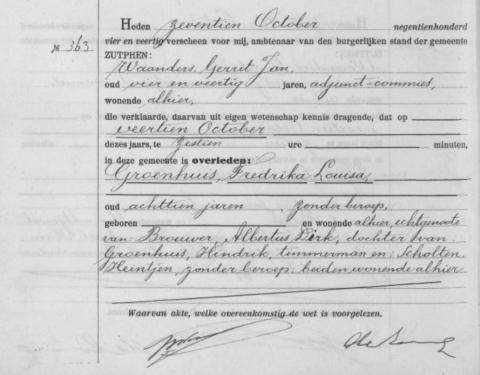 Heden zeventien October negentienhonderd
№ 363. vier en veertig verscheen voor mij, ambtenaar van den burgerlijken stand der gemeente
ZUTPHEN:
Waanders, Gerrit Jan,
oud vier en veertig jaren, adjunct-commies,
wonende alhier,
die verklaarde, daarvan uit eigen wetenschap kennis dragende, dat op
veertien October
dezes jaars, te zestien ure minuten,
in deze gemeente is overleden:
Groenhuis, Fredrika Louisa,
oud achttien jaren, zonder beroep,
geboren en wonende alhier, echtgenoote
van Brouwer, Albertus Dirk, dochter van:
Groenhuis, Hindrik, timmerman en: Scholten,
Heintjen, zonder beroep; beiden wonende alhier
Waarvan akte, welke overeenkomstig de wet is voorgelezen.